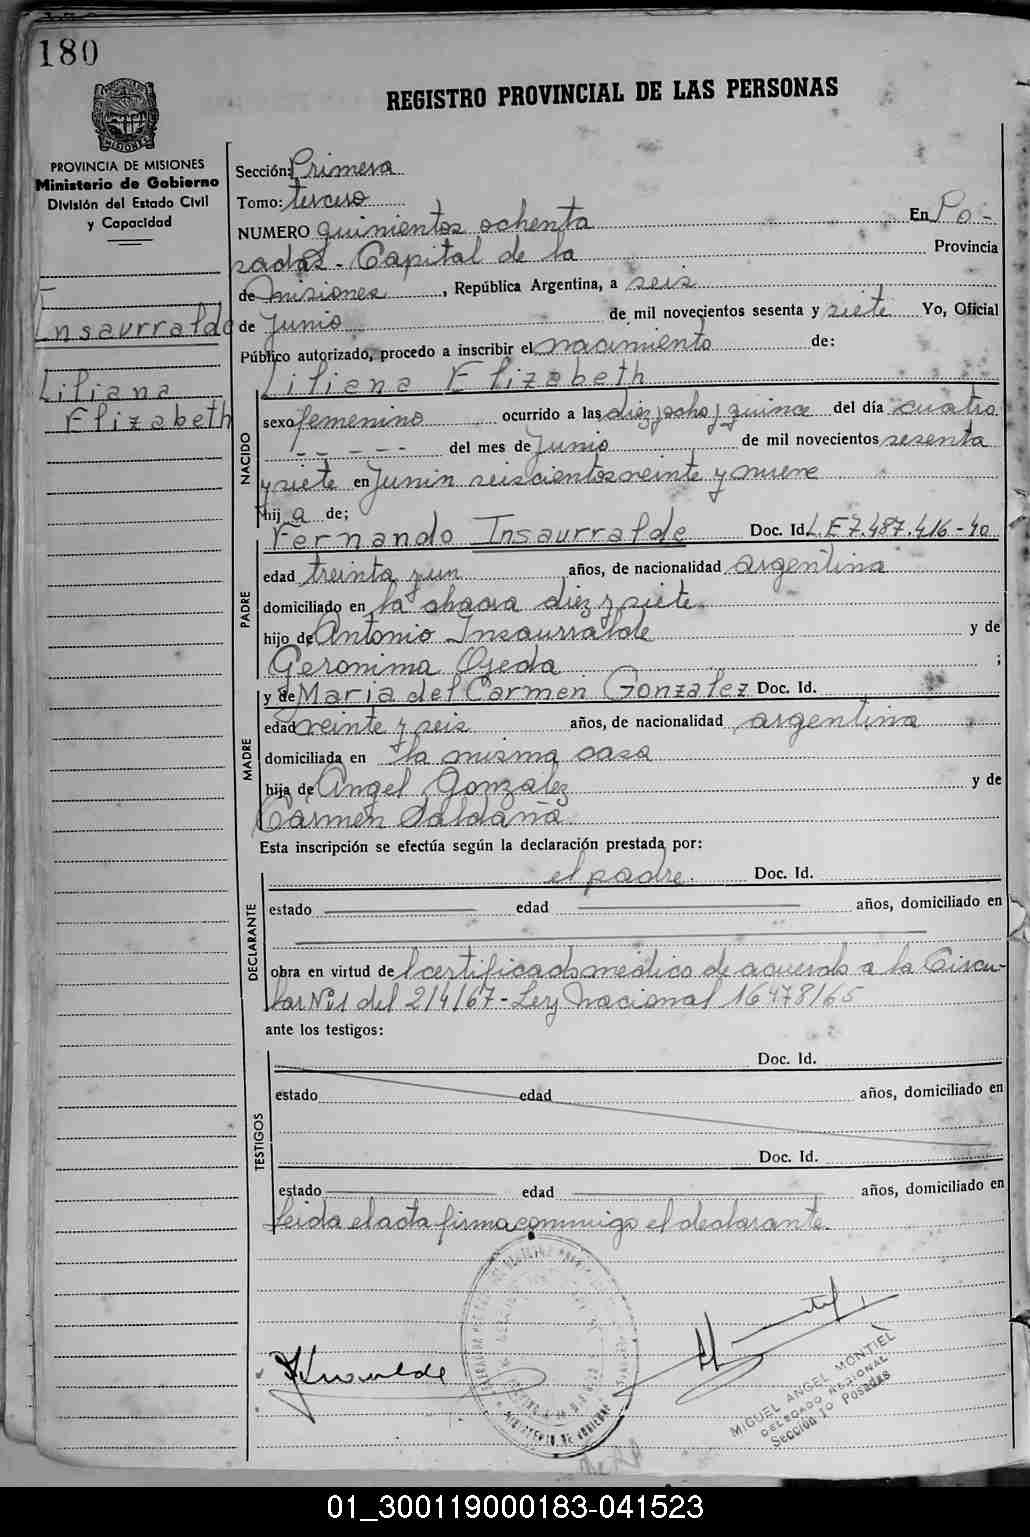 180
REGISTRO PROVINCIAL DE LAS PERSONAS
MISIONES
PROVINCIA DE MISIONES
Ministerio de Gobierno
División del Estado Civil
y Capacidad
Insaurralde
Liliana
Elizabeth
Sección: Primera
Tomo: tercero
NUMERO quinientos ochenta En Po-
sadas. Capital de la Provincia
de misiones, República Argentina, a seis
de Junio de mil novecientos sesenta y siete Yo, Oficial
Público autorizado, procedo a inscribir el nacimiento de:
Liliana Elizabeth
NACIDO
sexo femenino ocurrido a las diez y ocho y quince del día cuatro
- - - - - del mes de Junio de mil novecientos sesenta
y siete en Junin seiscientos veinte y nueve
hij a de;
PADRE
Fernando Insaurralde Doc. Id. L.E 7.487.416-40
edad treinta y un años, de nacionalidad argentina
domiciliado en la chacra diez y siete
hijo de Antonio Insaurralde y de
Geronima Ojeda ;
MADRE
y de Maria del Carmen Gonzalez Doc. Id.
edad veinte y seis años, de nacionalidad argentina
domiciliada en la misma casa
hija de Angel Gonzalez y de
Carmen Saldaña
Esta inscripción se efectúa según la declaración prestada por:
DECLARANTE
el padre. Doc. Id.
estado edad años, domiciliado en
obra en virtud de l certificado médico de acuerdo a la Circu-
lar Nº1 del 2/4/67 - Ley Nacional 16478/65
ante los testigos:
TESTIGOS
Doc. Id.
estado edad años, domiciliado en
Doc. Id.
estado edad años, domiciliado en
Leida el acta firma conmigo el declarante.
MIGUEL ANGEL MONTIEL
DELEGADO REGIONAL
Sección 1º Posadas
MINISTERIO DE GOBIERNO
01_300119000183-041523